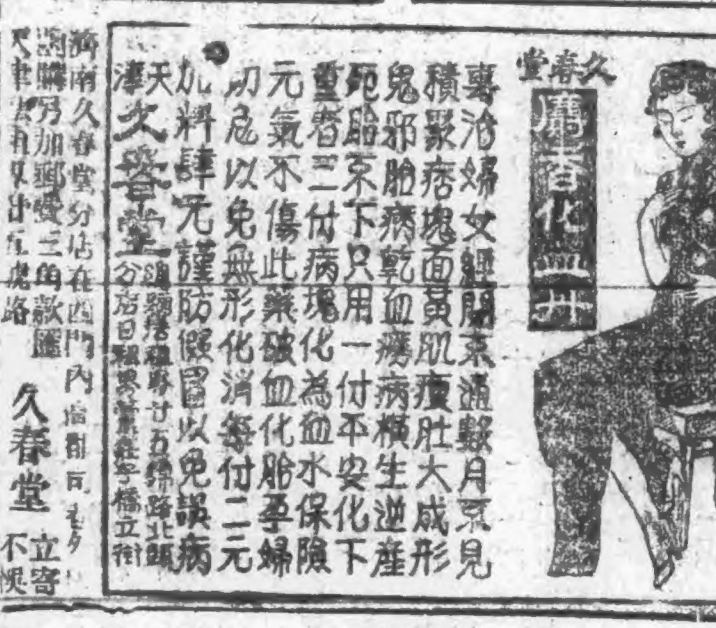 久春堂
麝香化血丹
專治婦女經閉不通數月不見
積聚痞塊面黃肌瘦肚大成形
鬼邪胎病乾血癆病橫生逆產
死胎不下只用一付平安化下
重者二付病塊化為血水保險
元氣不傷此藥破血化胎孕婦
切忌以免無形化消每付二元
加料肆元謹防假冒以免誤病
天津久春堂
分店日租界
濟南久春堂分店在西門內
函購另加郵費三角款匯
久春堂
立寄
不悞